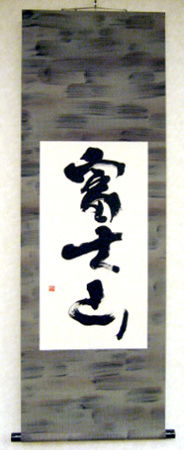 富士山